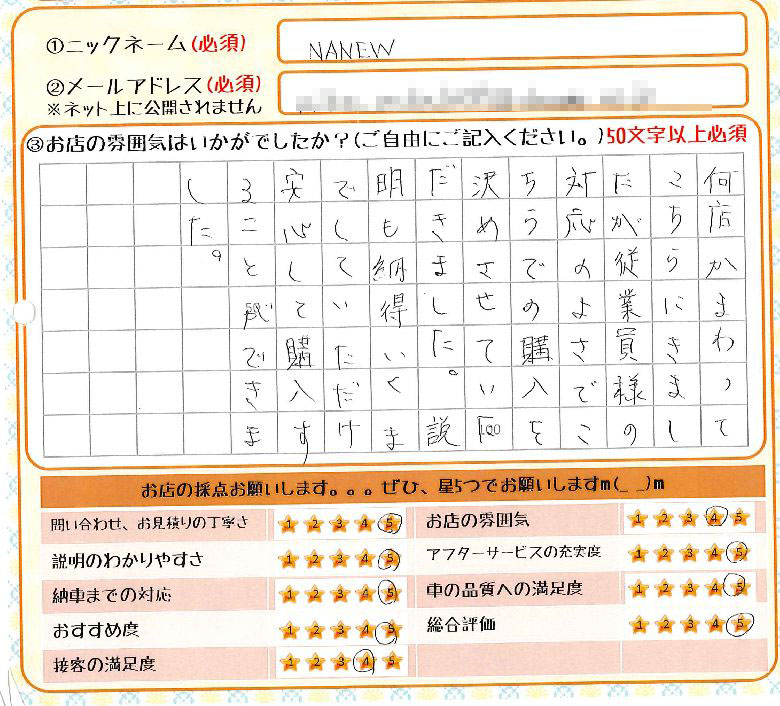 ①ニックネーム(必須)
NANEW
②メールアドレス(必須)
※ネット上に公開されません
③お店の雰囲気はいかがでしたか?(ご自由にご記入ください。)50文字以上必須
何店かまわって
こちらにきまし
たが従業員様の
対応のよさでこ
ちらでの購入を
決めさせてい
だきました。説
明も納得いくま
でしていただけ
安心して購入す
ることができま
した。
お店の採点お願いします。。。ぜひ、星5つでお願いしますm(_ _)m
問い合わせ、お見積りの丁寧さ 1 2 3 4 5
お店の雰囲気 1 2 3 4 5
説明のわかりやすさ 1 2 3 4 5
アフターサービスの充実度 1 2 3 4 5
納車までの対応 1 2 3 4 5
車の品質への満足度 1 2 3 4 5
おすすめ度 1 2 3 4 5
総合評価 1 2 3 4 5
接客の満足度 1 2 3 4 5